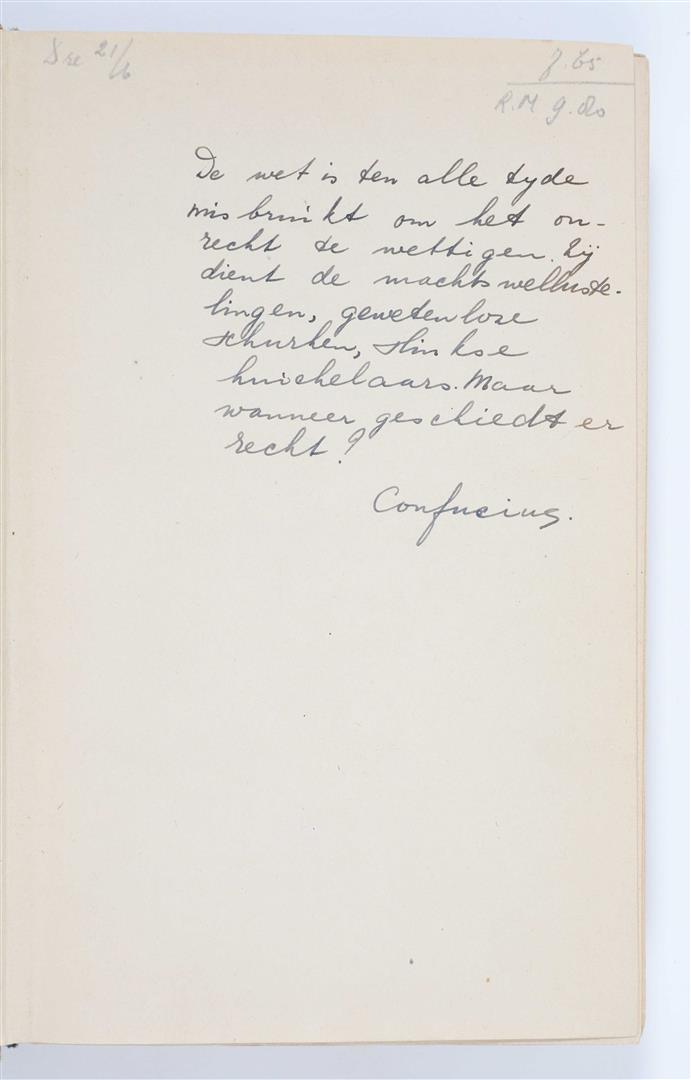 21/6
R.M 9.80
De wet is ten alle tyde
misbruikt om het on-
recht te wettigen. Zij
dient de machtswelluste-
lingen, gewetenloze
schurken, slinkse
huichelaars. Maar
wanneer geschiedt er
recht?
Confucius.